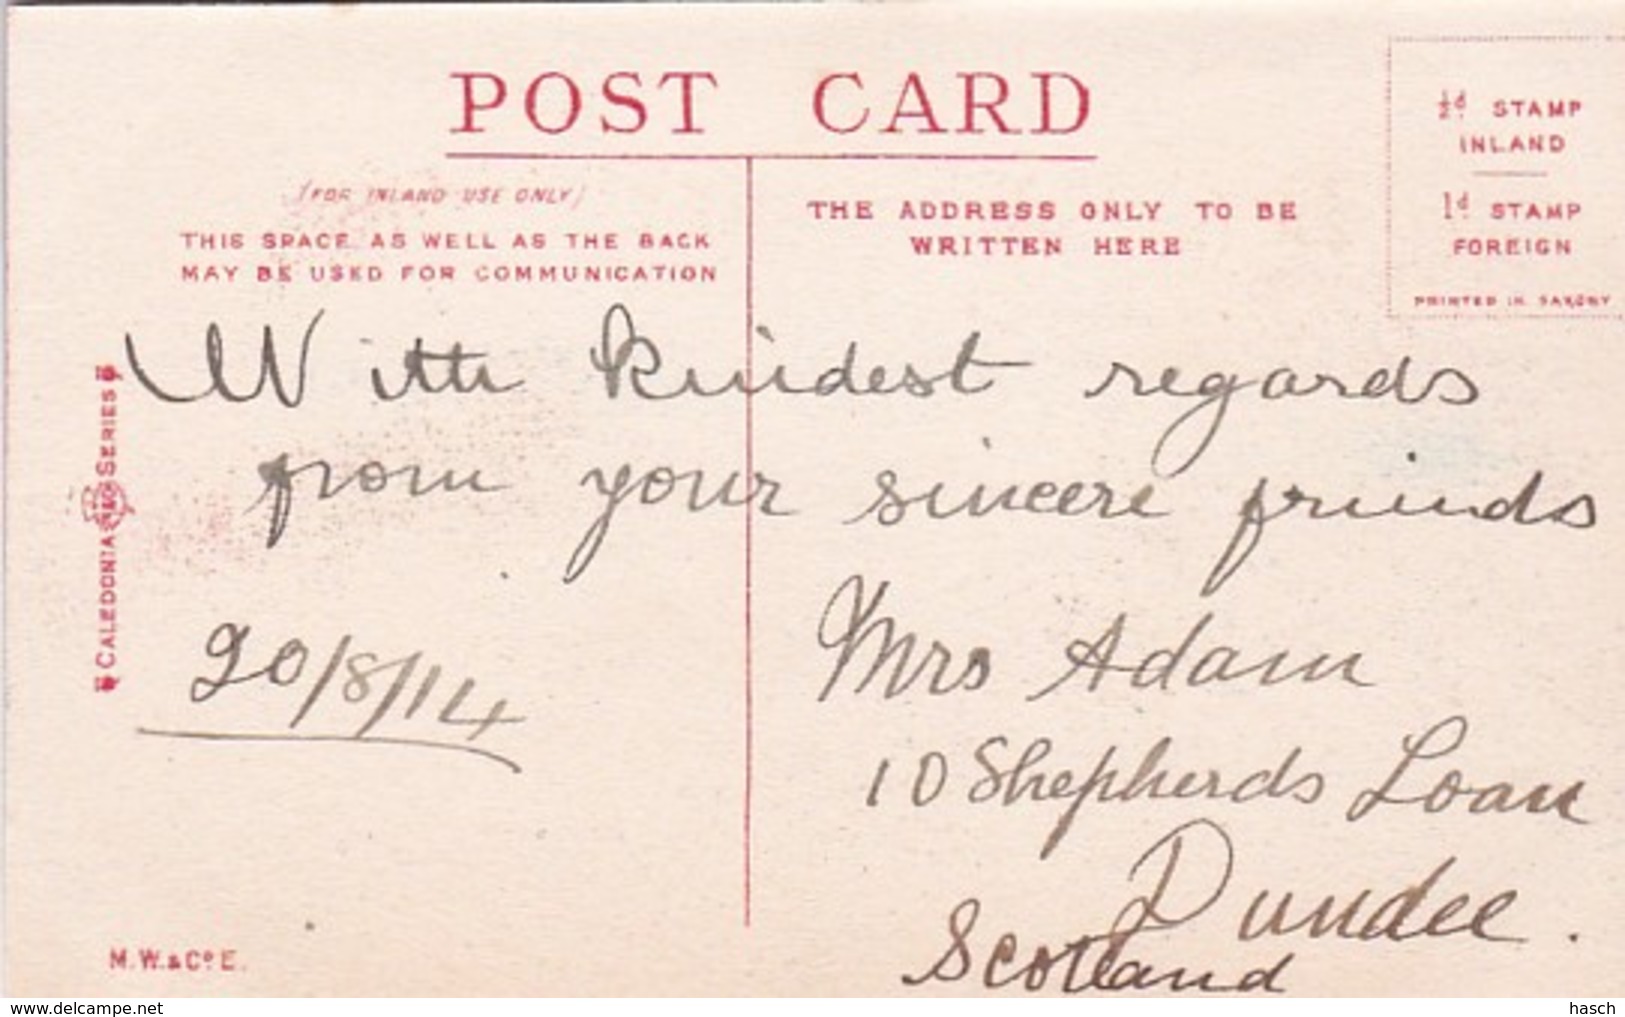 POST CARD
(FOR INLAND USE ONLY)
THIS SPACE AS WELL AS THE BACK
MAY BE USED FOR COMMUNICATION
THE ADDRESS ONLY TO BE
WRITTEN HERE
½d. STAMP
INLAND
1d. STAMP
FOREIGN
PRINTED IN SAXONY
With kindest regards
from your sincere friends
20/8/14
Mrs Adam
10 Shepherds Loan
Dundee.
Scotland
CALEDONIA SERIES
M.W.&Co E.
www.delcampe.net
hasch